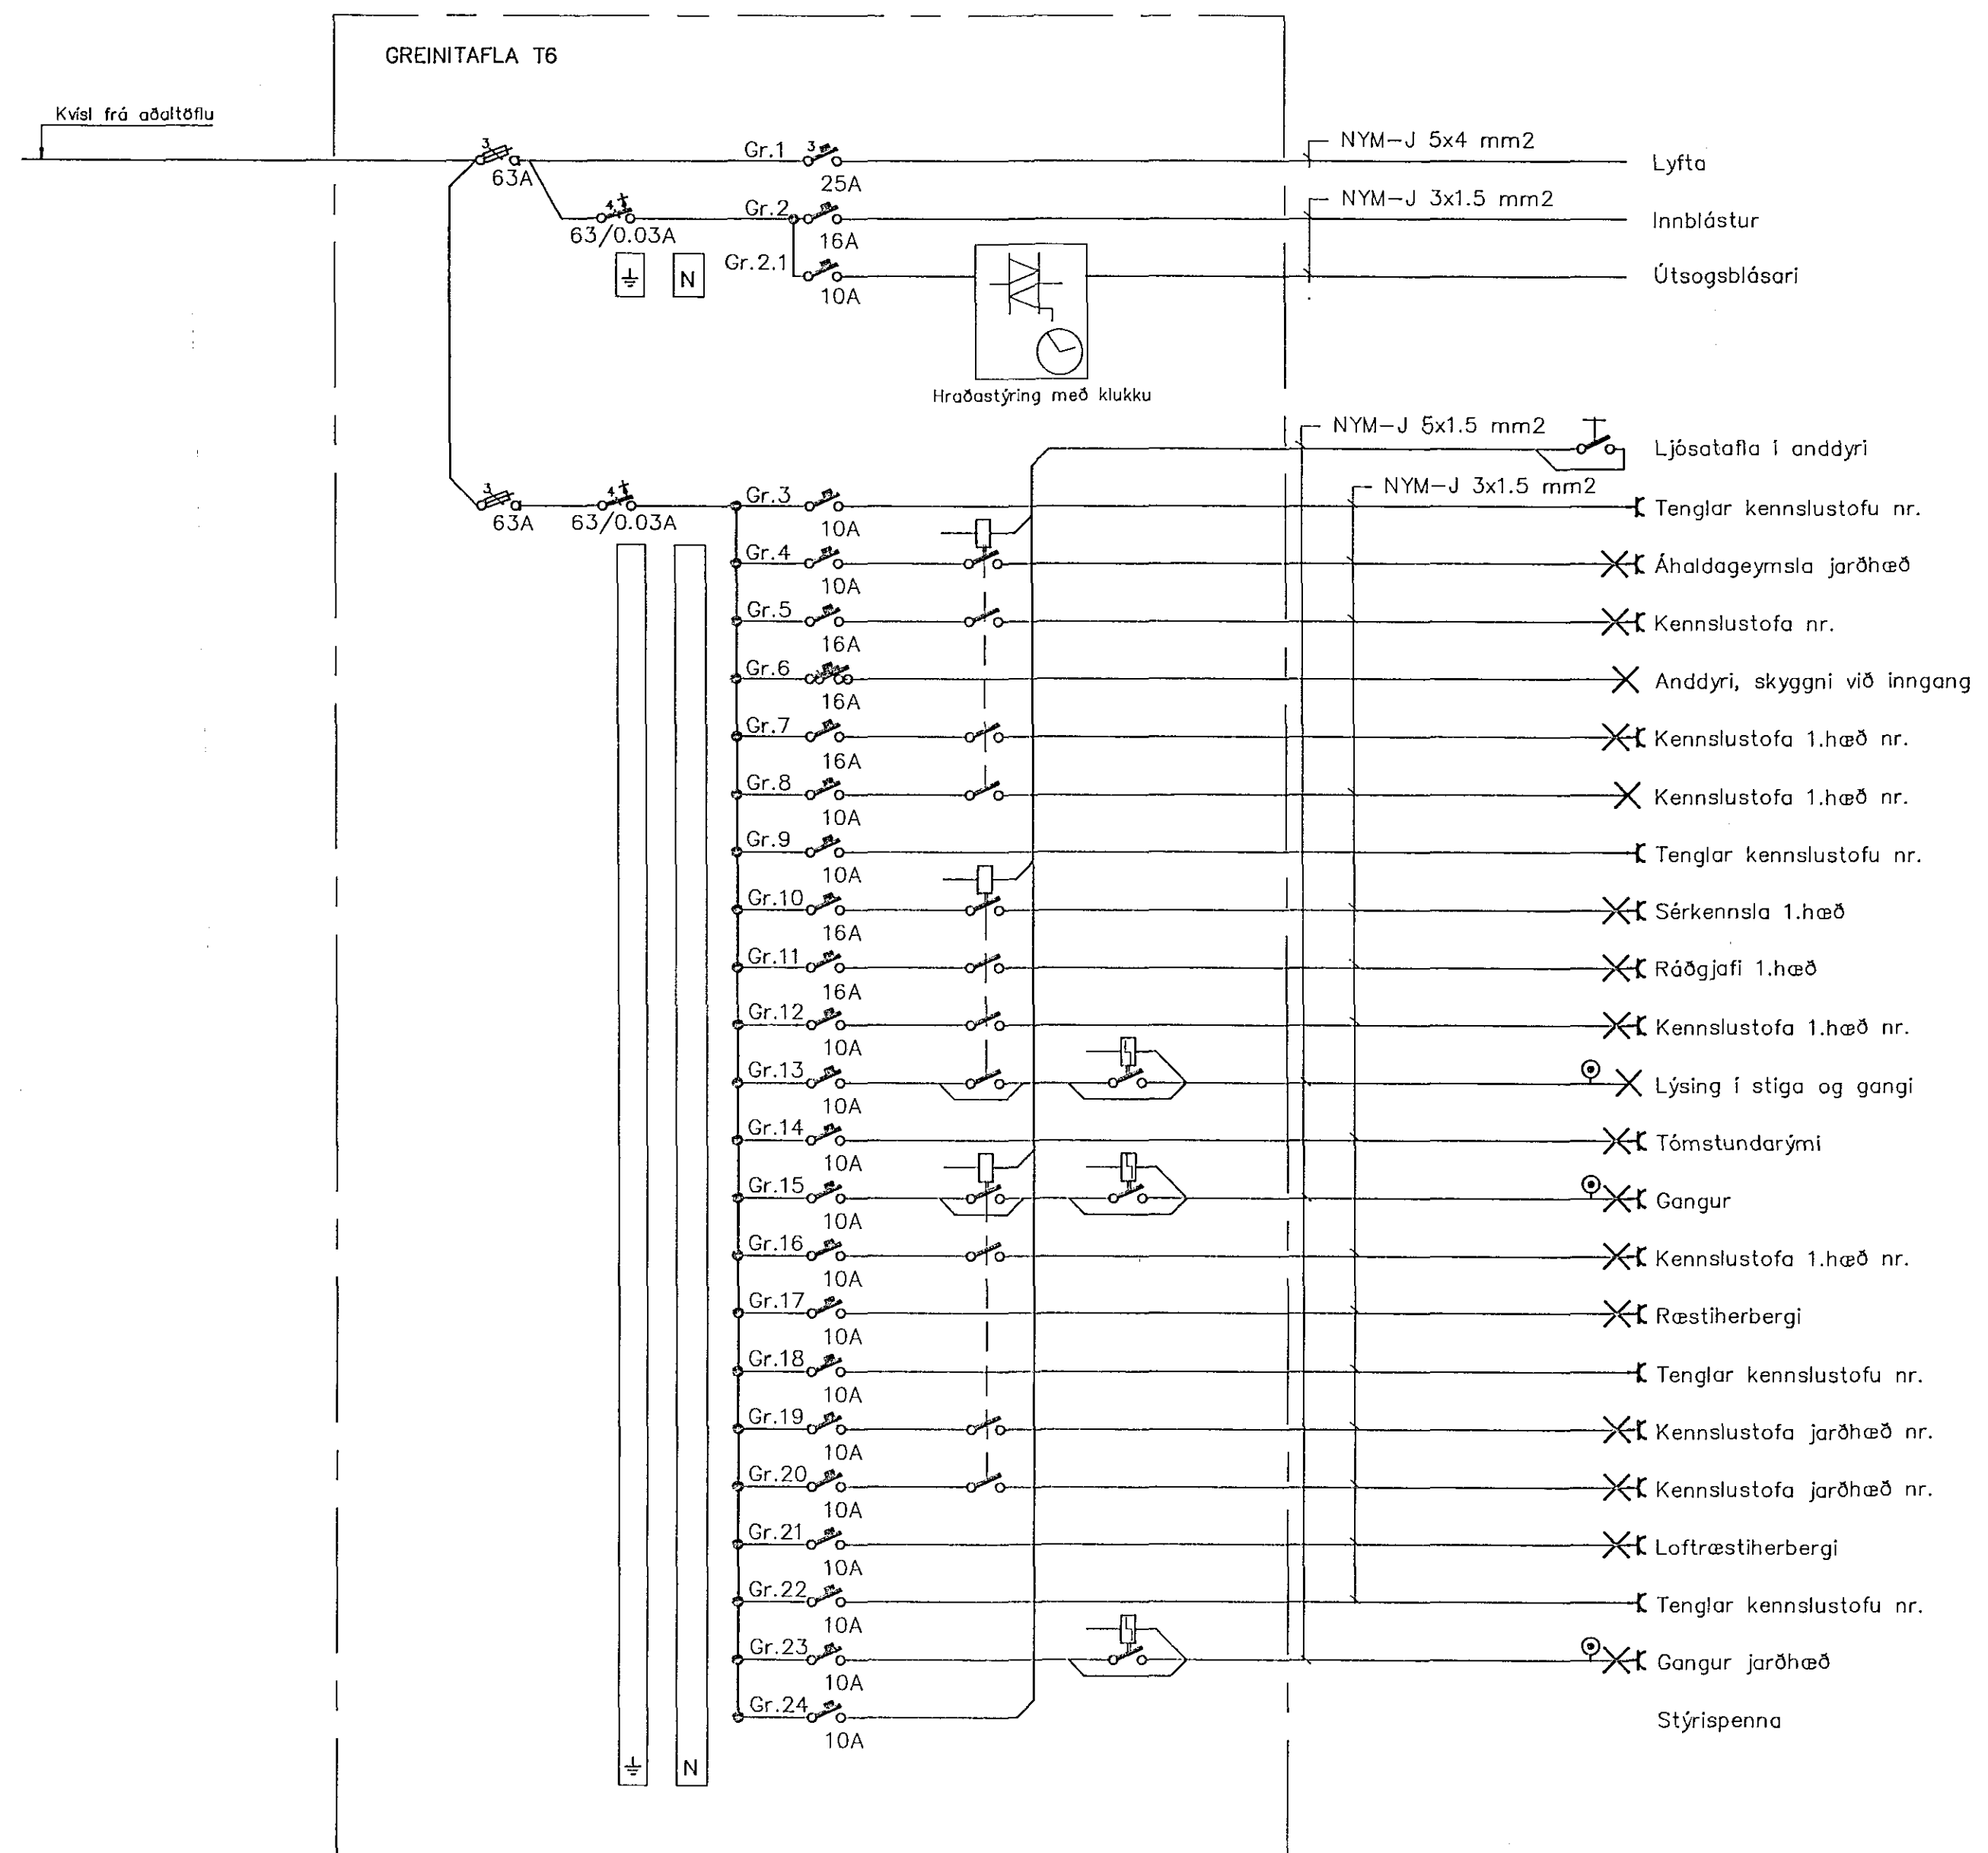 GREINITAFLA T6
Kvísl frá aðaltöflu
3
63A
Gr.1
3
25A
NYM-J 5x4 mm2
Lyfta
4
63/0.03A
Gr.2
16A
NYM-J 3x1.5 mm2
Innblástur
N
Gr.2.1
10A
Útsogsblásari
Hraðastýring með klukku
NYM-J 5x1.5 mm2
Ljósatafla í anddyri
3
63A
4
63/0.03A
Gr.3
10A
NYM-J 3x1.5 mm2
Tenglar kennslustofu nr.
Gr.4
10A
Áhaldageymsla jarðhæð
Gr.5
16A
Kennslustofa nr.
Gr.6
16A
Anddyri, skyggni við inngang
Gr.7
16A
Kennslustofa 1.hæð nr.
Gr.8
10A
Kennslustofa 1.hæð nr.
Gr.9
10A
Tenglar kennslustofu nr.
Gr.10
16A
Sérkennsla 1.hæð
Gr.11
16A
Ráðgjafi 1.hæð
Gr.12
10A
Kennslustofa 1.hæð nr.
Gr.13
10A
Lýsing í stiga og gangi
Gr.14
10A
Tómstundarými
Gr.15
10A
Gangur
Gr.16
10A
Kennslustofa 1.hæð nr.
Gr.17
10A
Ræstiherbergi
Gr.18
10A
Tenglar kennslustofu nr.
Gr.19
10A
Kennslustofa jarðhæð nr.
Gr.20
10A
Kennslustofa jarðhæð nr.
Gr.21
10A
Loftræstiherbergi
Gr.22
10A
Tenglar kennslustofu nr.
Gr.23
10A
Gangur jarðhæð
Gr.24
10A
Stýrispenna
N